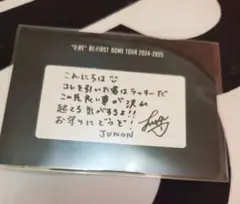 "2:BE" BE:FIRST DOME TOUR 2024-2025
こんにちは
コレを引いた君はラッキーだ
この先良い事が沢山
起こる気がするよ!!
お守りにどうぞ!
JUNON